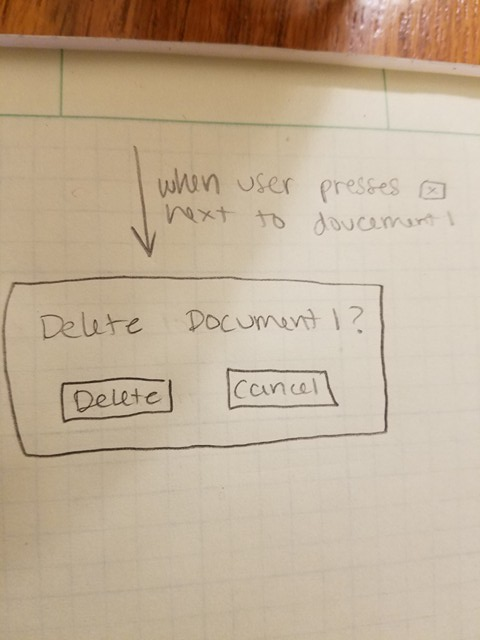 when user presses [x]
next to doucement 1
Delete Document 1?
Delete Cancel